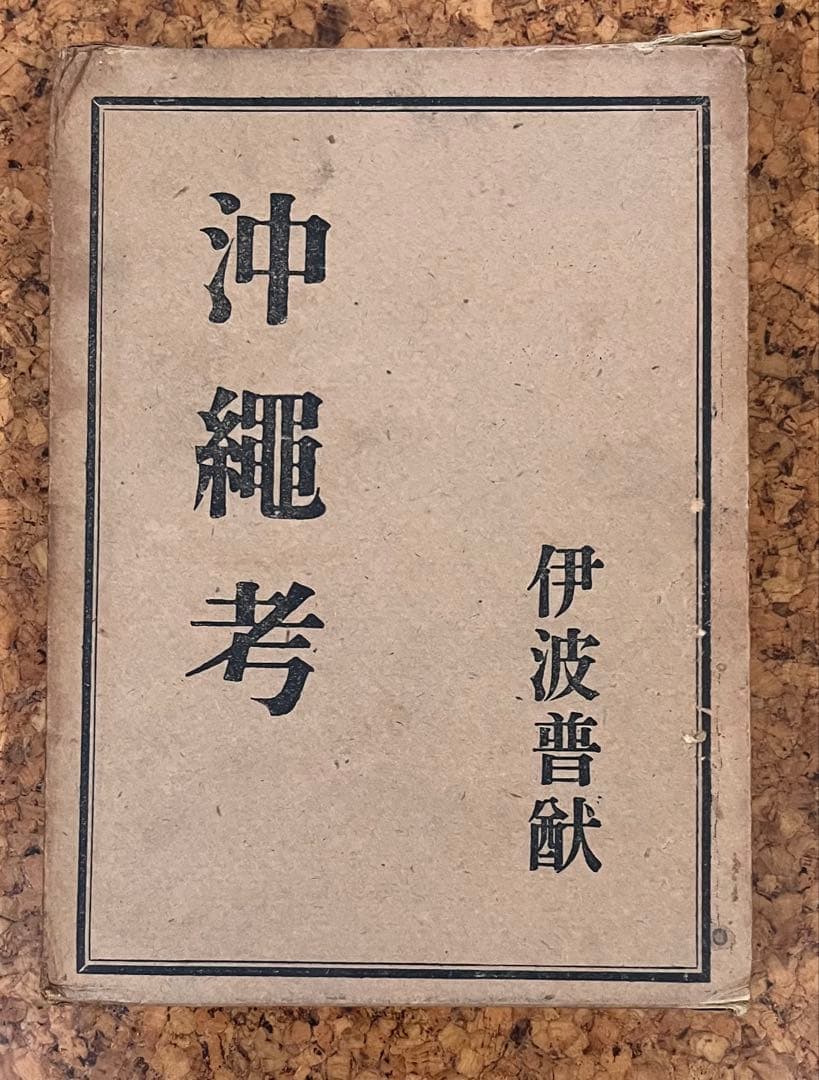 伊波普猷
沖繩考